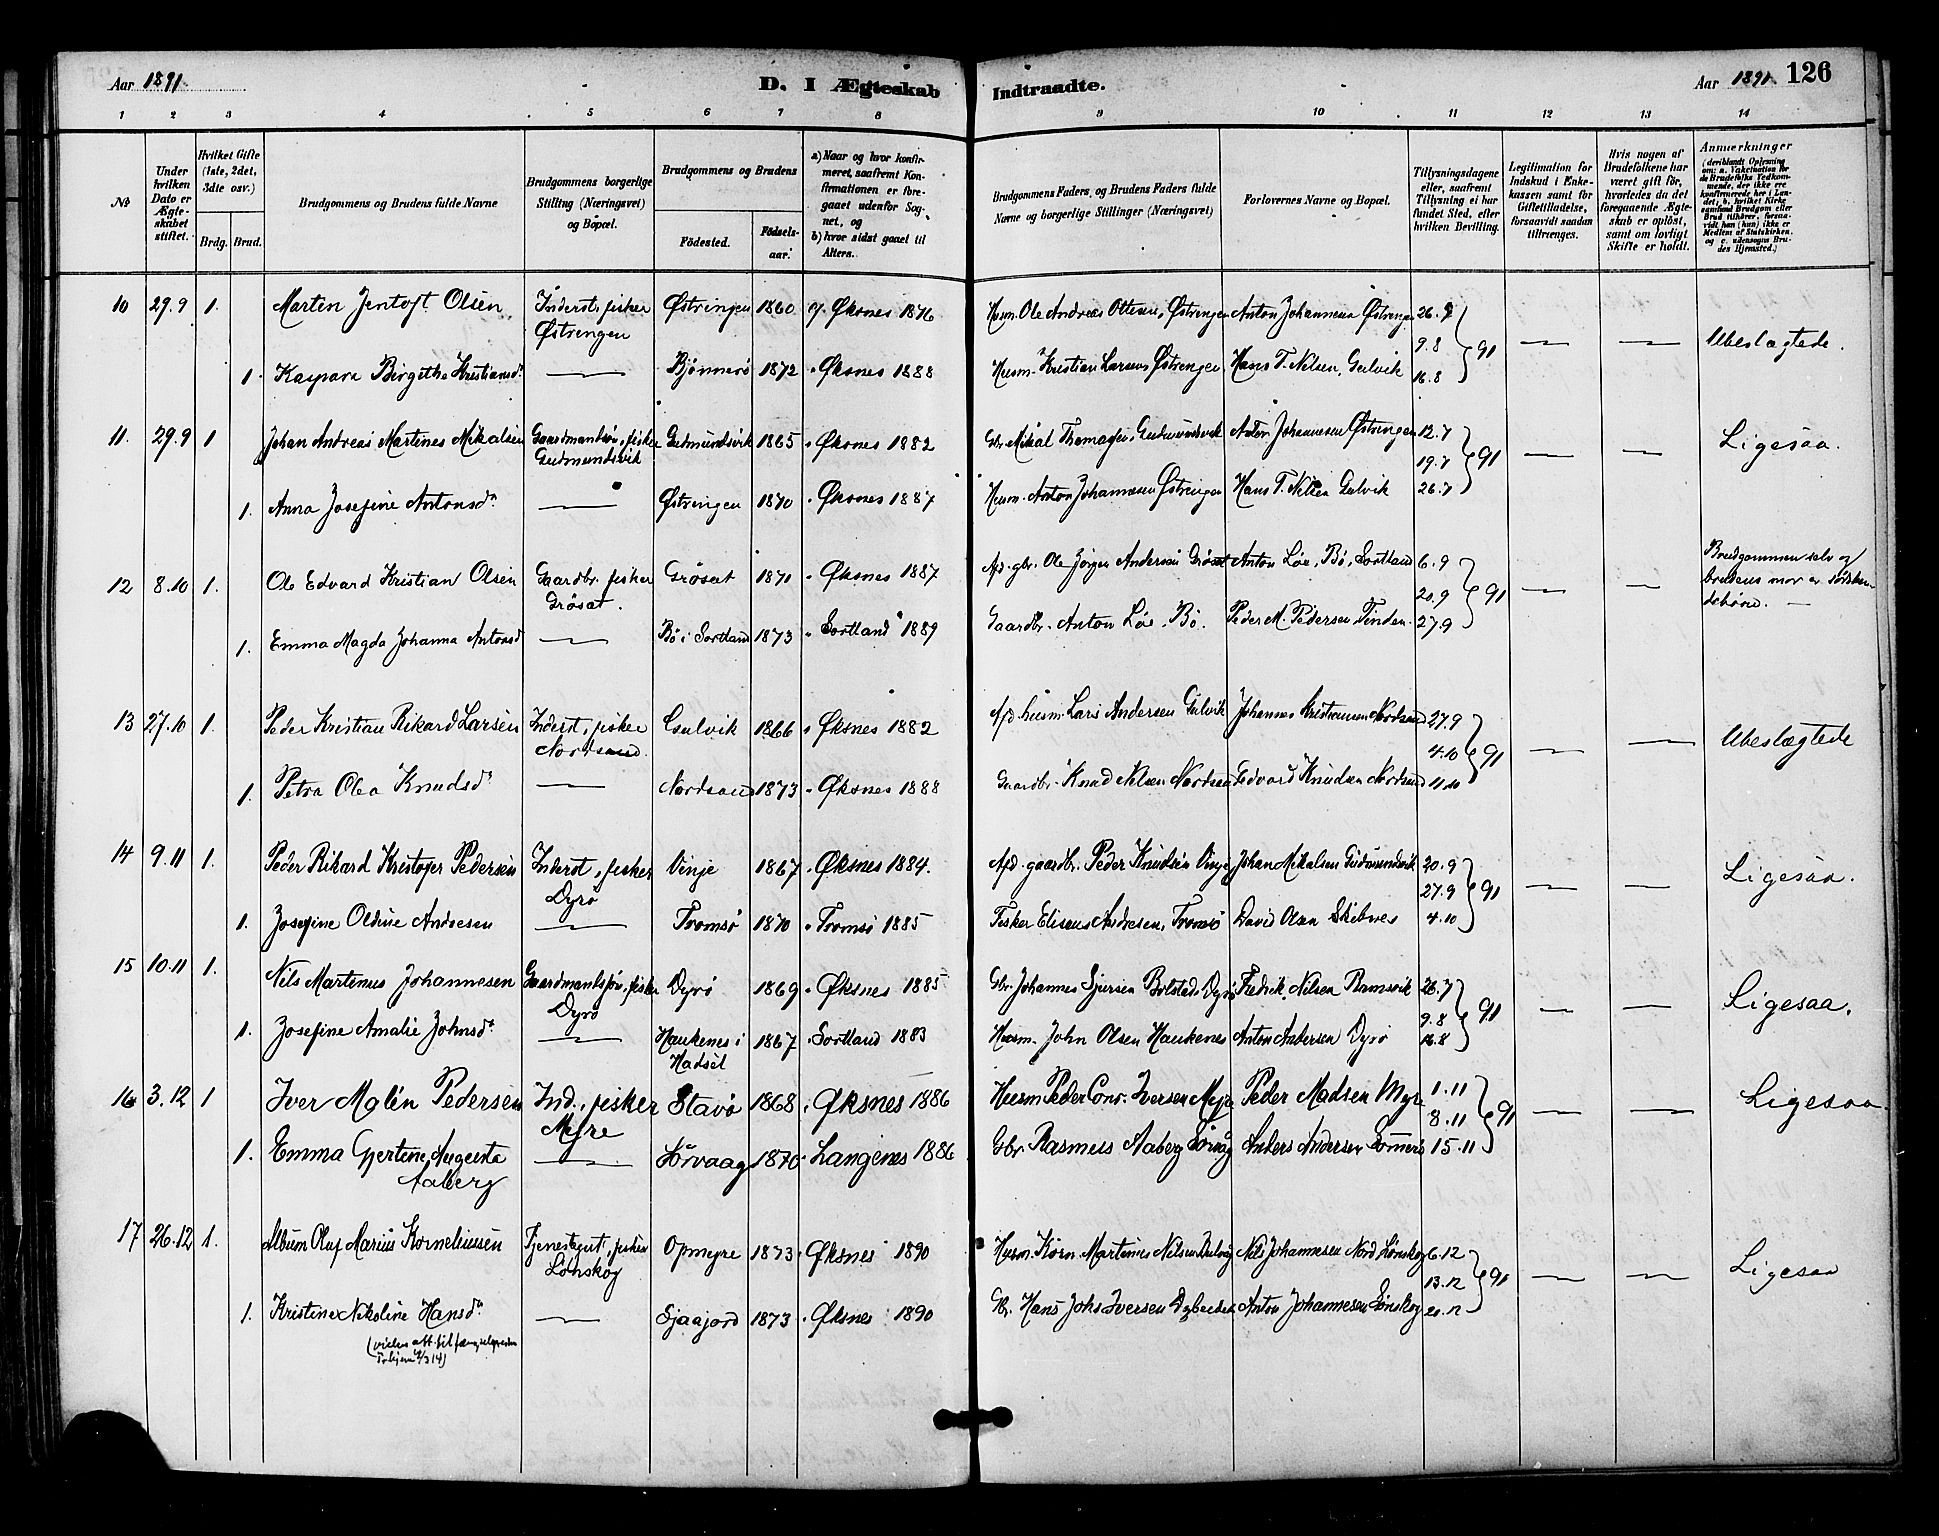 Aar 1891. D. I Ægteskab Indtraadte. Aar 1891. 126
1 2 3 4 5 6 7 8 9 10 11 12 13 14
No
Under hvilken Dato er Ægteskabet stiftet.
Hvilket Gifte (1ste, 2det, 3die osv.)
Brdg. Brud.
Brudgommens og Brudens fulde Navne
Brudgommens borgerlige Stilling (Næringsvei) og Bopæl.
Brudgommens og Brudens
Fødested. Fødselsaar.
a) Naar og hvor konfirmeret, saafremt Konfirmationen er foregaaet udenfor Sognet, og
b) hvor sidst gaaet til Alters.
Brudgommens Faders og Brudens Faders fulde Navne og borgerlige Stillinger (Næringsvei)
Forlovernes Navne og Bopæl.
Tillysningsdagene eller, saafremt Tillysning ei har fundet Sted, efter hvilken Bevilling.
Legitimation for Indskud i Enkekassen samt for Giftetilladelse, forsaavidt saadan tiltrænges.
Hvis nogen af Brudefolkene har været gift før, hvorledes da det foregaaende Ægteskab er opløst, samt om lovligt Skifte er holdt.
Anmærkninger (deriblandt Oplysning om: a. Vakcination for de Brudefolks Vedkommende, der ikke ere konfirmerede her i Landet, b. hvilket Kirkesamfund Brudgom eller Brud tilhører, forsaavidt han (hun) ikke er Medlem af Statskirken, og c. udensogns Brudes Hjemsted.)
10 29.9 1. Marten Jentoft Olsen Inderst, fisker Østringen 1860 Øksnes 1876 Husm. Ole Andreas Ottesen, Østringen Anton Johannesen Østringen 26.7
Østringen
9.8 91 — — Ubeslægtede.
1. Kaspara Birgithe Kristiansd. — Bjønnerø 1872 " Øksnes 1888 Husm. Kristian Larsen Østringen Hans T. Nilsen, Gulvik 16.8
11. 29.9 1 Johan Andreas Martines Mikalsen Gaardmandsøn, fisker Gudmundsvik 1865 " Øksnes 1882 Gbr. Mikal Thomassen Gudmundsvik Anton Johannesen Østringen 12.7
Gudmundsvik
19.7 91 — — Ligesaa.
1. Anna Josefine Antonsd. — Østringen 1870 " Øksnes 1887 Husm. Anton Johannesen Østringen Hans T. Nilsen Gulvik 26.7
12 8.10 1. Ole Edvard Kristian Olsen Gaardbr. fisker Grøsæt 1871 " Øksnes 1887 Afd. gbr. Ole Jørgen Andersen Grøsæt Anton Løe, Bø, Sortland 6.9
Grøsæt.
20.9 91 — — Brudgommen selv og
brudens mor er søsken-
debørn. —
1. Emma Magda Johanna Antonsd — Bø i Sortland 1873 " Sortland 1889 Gaardbr. Anton Løe, Bø. Peder M. Pedersen Finden. 27.9
13 27.10 1. Peder Kristian Rikard Larsen Inderst, fisker Gulvik 1866 " Øksnes 1882 Afd. husm. Lars Andersen Gulvik Johannes Kristiansen Nordsand 27.9
Nordsand.
4.10 91 — — Ubeslægtede
1. Petra Olea Knudsd. — Nordsand 1873 " Øksnes 1888 Gaardbr. Knud Nilsen Nordsand Edvard Knudsen Nordsand 11.10
14 9.11 1. Peder Rikard Kristofer Pedersen Inderst, fisker Vinje 1867 " Øksnes 1884. Afd. gaardbr. Peder Knudsen Vinje Johan Mikalsen Gudmundsvik 20.9
Dyrø
27.9 91 — — Ligesaa.
1. Josefine Oldine Andresen — Tromsø 1870 " Tromsø 1885 Fisker Eliseus Andresen, Tromsø David Olsen Skibnes 4.10
15 10.11 1. Nils Martinus Johannesen Gaardmandsøn, fisker Dyrø 1869 " Øksnes 1885 Gbr. Johannes Sjursen Bolstad, Dyrø Fredrik Nilsen 26.7
Dyrø
9.8 91 — — Ligesaa.
1. Josefine Amalie Johnsd. — Haukenes i 1867 " Sortland 1883 Husm. John Olsen Haukenes Anton Andersen Dyrø 16.8
Hadsel
16 3.12 1 Iver Malén Pedersen Ind., fisker Stavø 1868 " Øksnes 1886 Husm. Peder Conr. Iversen Myre Peder Madsen Myre 1.11
Myre
8.11 91 — — Ligesaa.
1. Emma Gjertine Augusta — Sørvaag 1870 " Langenes 1886 Gbr. Rasmus Aaberg Anders Andersen 15.11
Aaberg
17 26.12 1. Album Oluf Marius Korneliussen Tjenestegut, fisker Opmyre 1873 " Øksnes 1890 Husm. Korn. Martinus Nilsen Nils Johannesen Nord Lønskog 6.12
Lønskog
13.12 91 — — Ligesaa
1. Kristine Nikoline Hansd. — Sjaajord 1873 " Øksnes 1890 Gbr. Hans Johs Iversen Anton Johannesen Lønskog 20.12